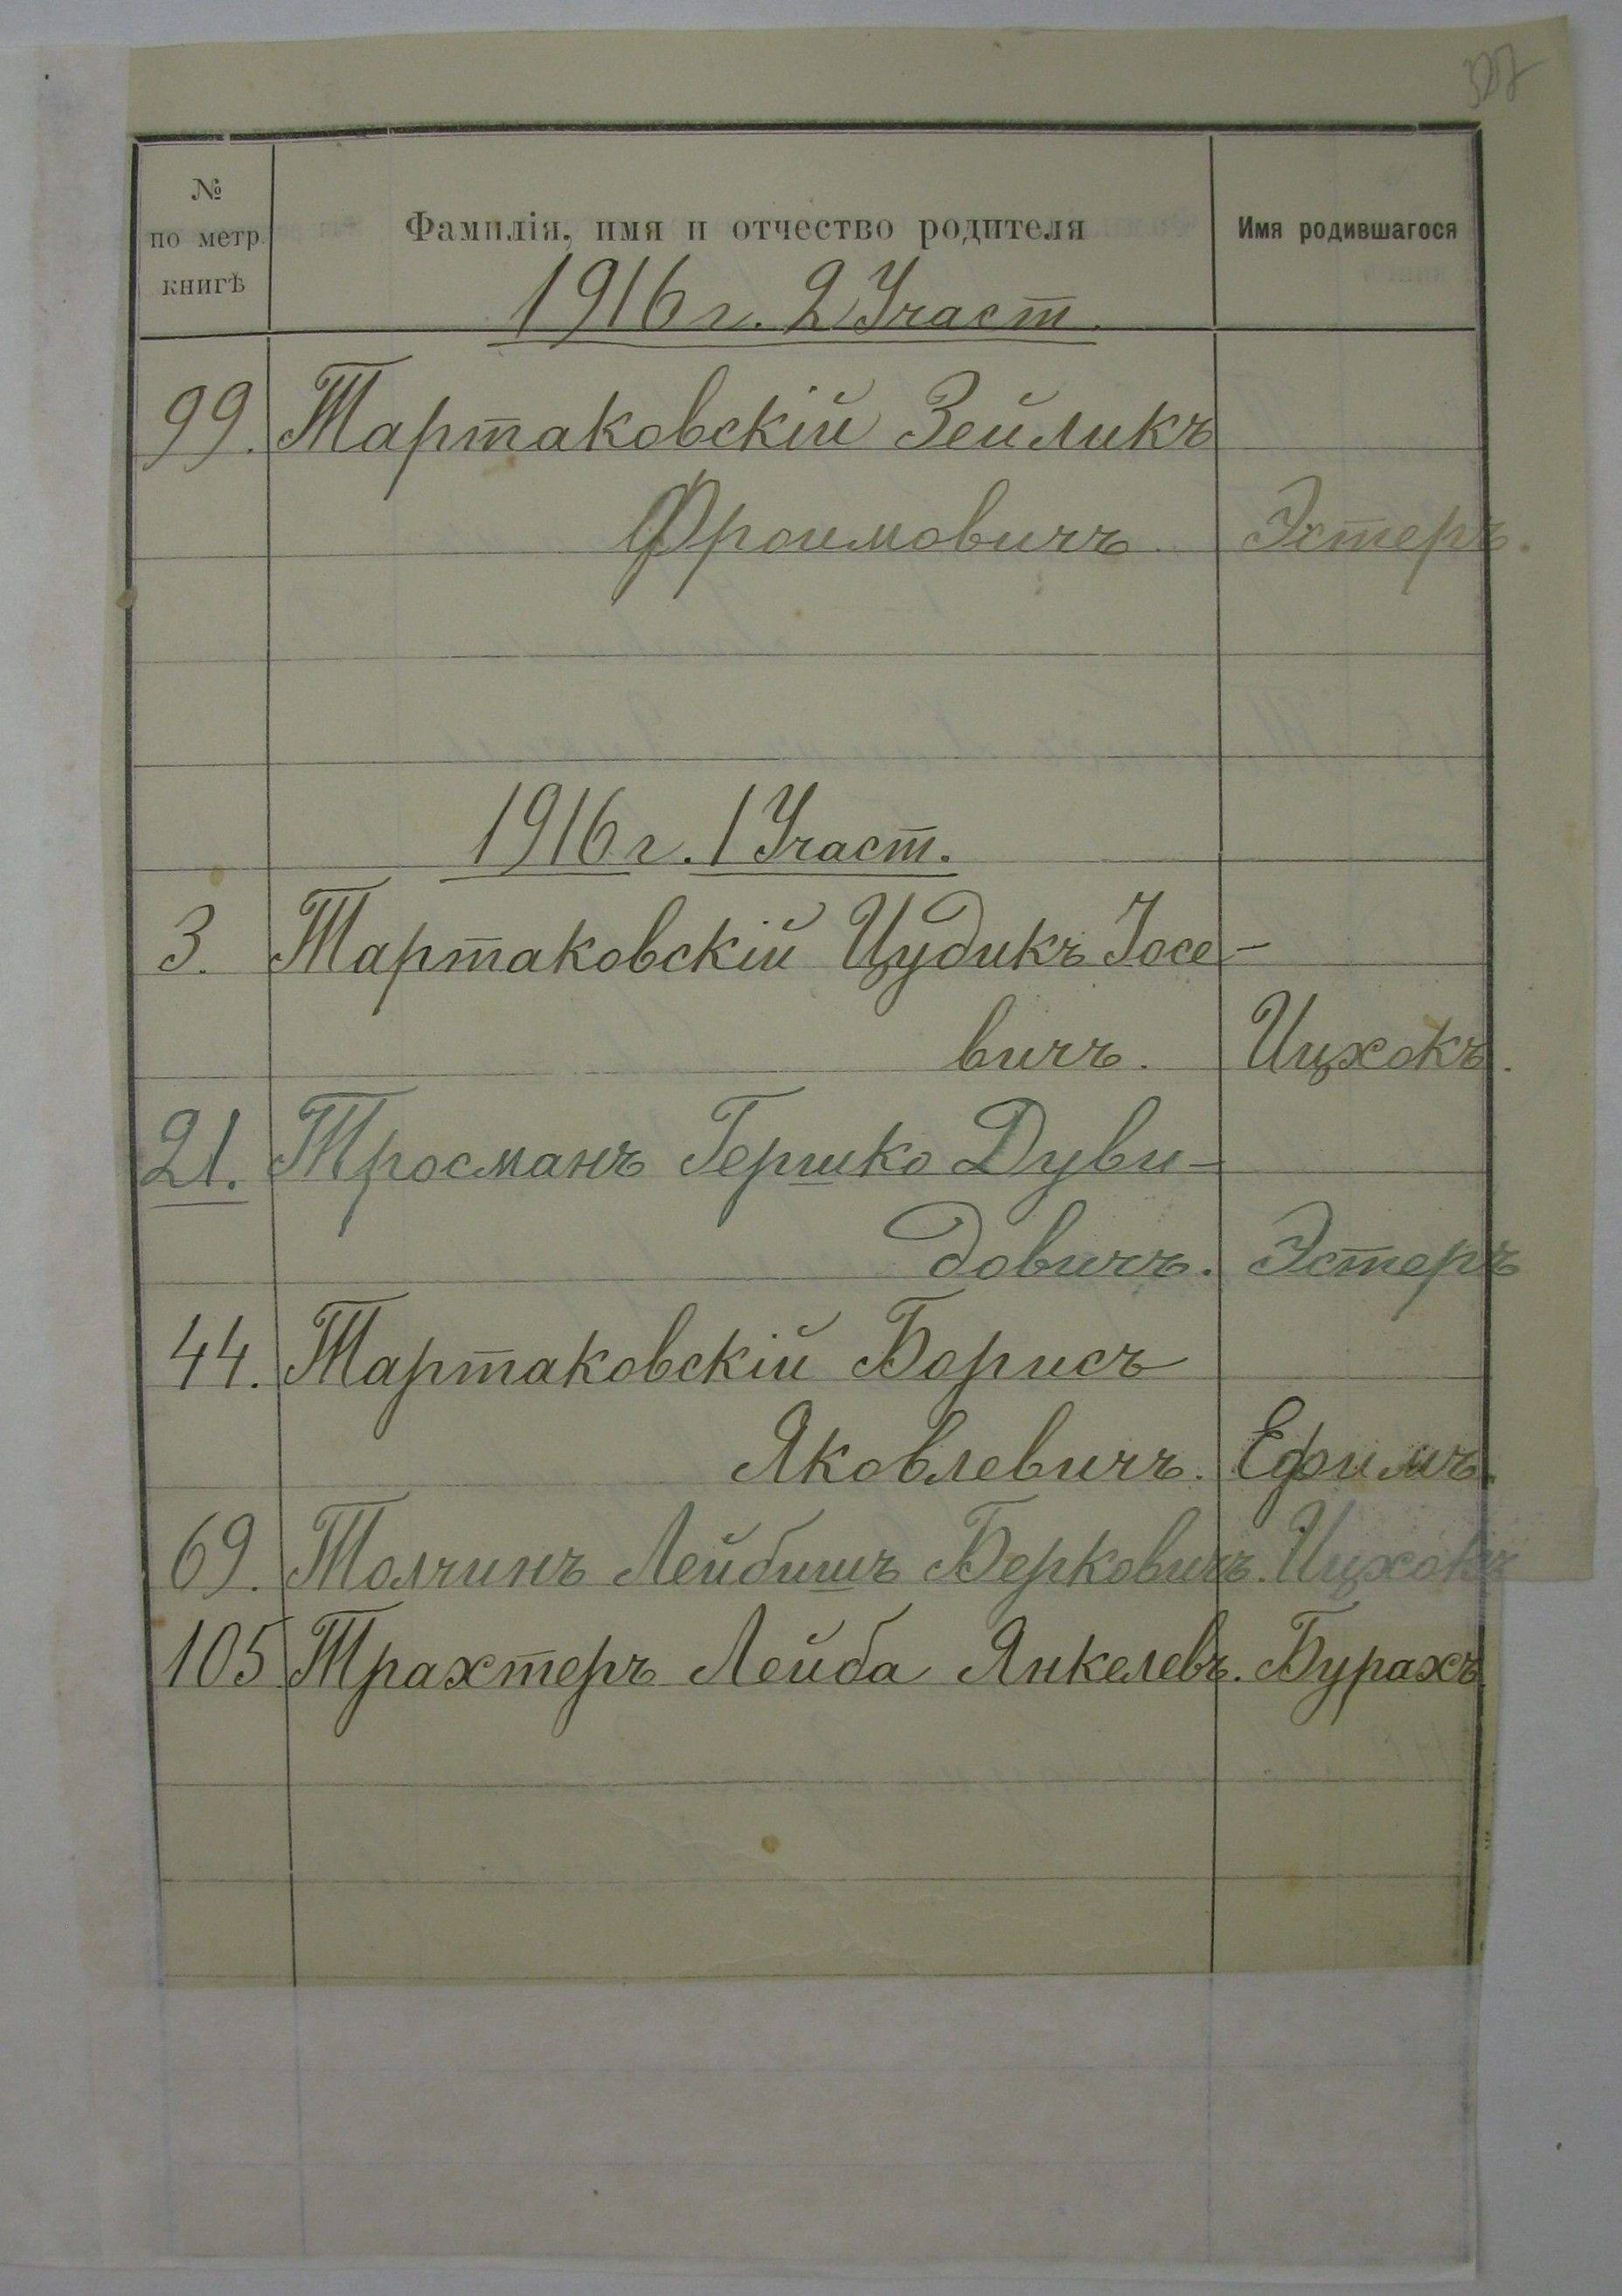 №
по метр.
книгѣ
Фамилія, имя и отчество родителя
Имя родившагося
1916 г. 2 Участ.
99. Тартаковскій Зейликъ
Фроимовичъ. Эстеръ.
1916 г. 1 Участ.
3. Тартаковскій Цудикъ Іосе-
вичъ. Ицхокъ.
21. Тросманъ Гершко Дуви-
довичъ. Эстеръ
44. Тартаковскій Борисъ
Яковлевичъ. Ефимъ.
69. Толчинъ Лейбишъ Берковичъ. Ицхокъ
105. Трахтеръ Лейба Янкелевъ. Бурахъ